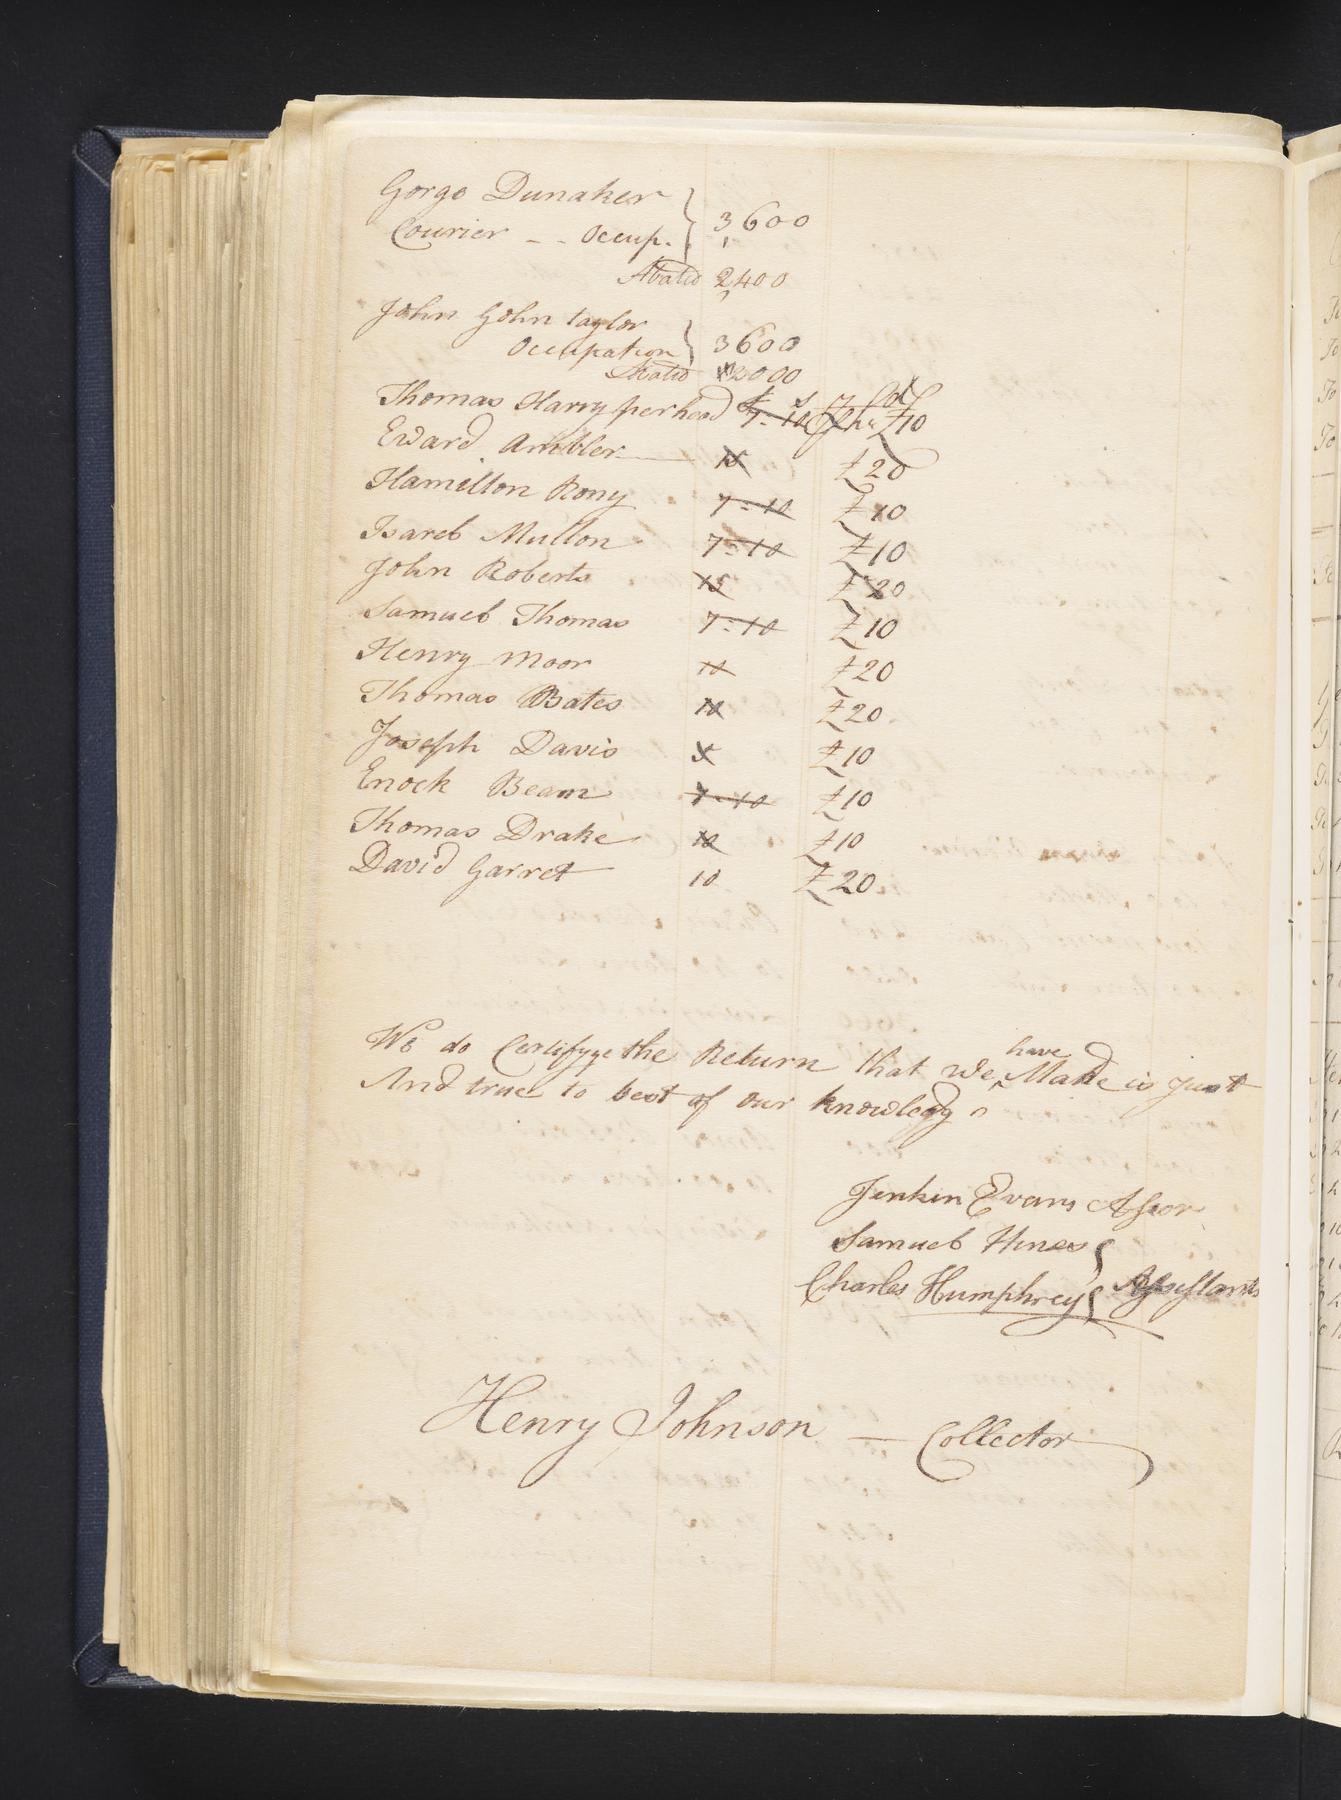 Gorge Dunaker
Courier - - Occup. } 3,600
Abated 2,400
John John taylor
Occupation } 3600
Abated 2000
Thomas Harry per head £ s 7-10 £10
Eward Ambler 15 £20
Hamilton Rony 7-10 £10
Isareb Mullon 7-10 £10
John Roberts 15 £20
Samueb Thomas 7-10 £10
Henry Moor 10 £20
Thomas Bates 10 £20
Joseph Davis £10
Enock Beam 7-10 £10
Thomas Drake 10 £10
David Garret 10 £20
We do Certifyye the Return that we have Made is just
And true to best of our knowledg
Jenkin Evans Assor
Samueb Hines
Charles Humphrey } Assistants
Henry Johnson — Collector